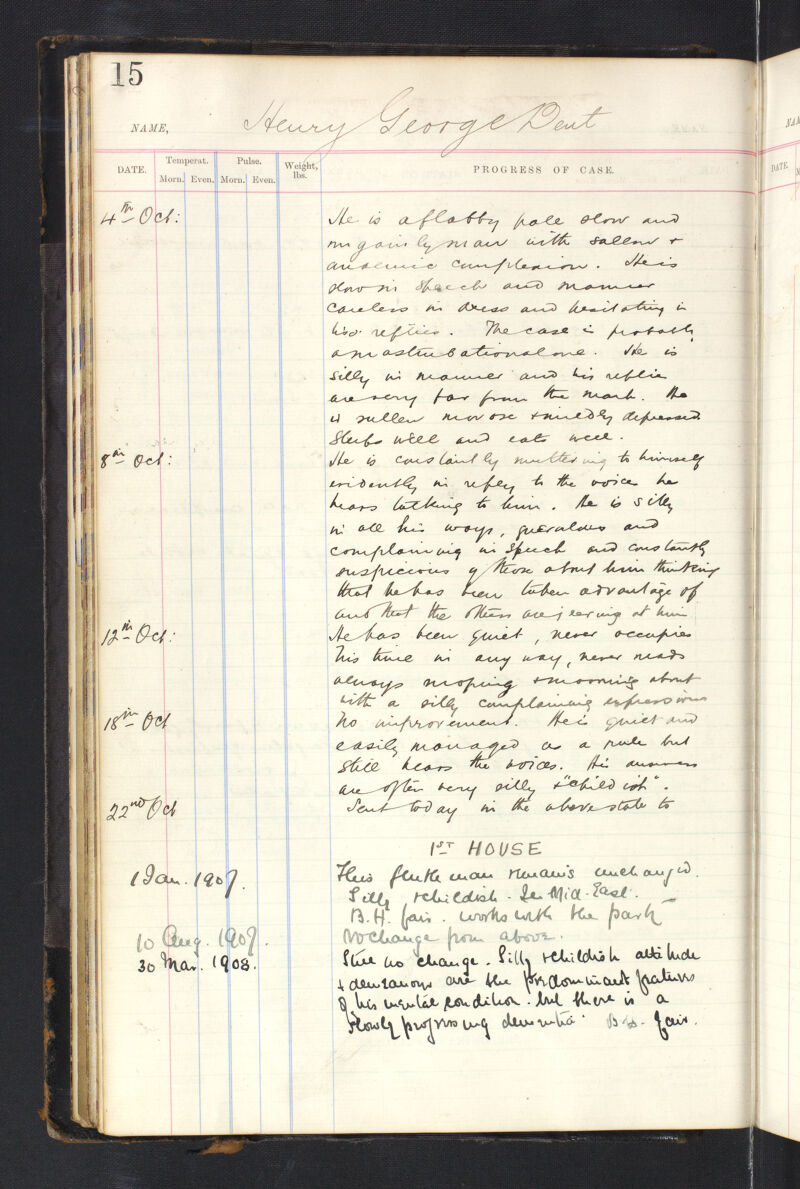 15
NAME, Henry George Dent
DATE. Temperat. Pulse. Weight, lbs. PROGRESS OF CASE.
Morn. Even. Morn. Even.
4th Oct: He is a flabby pale slow and
ungainly man with sallow +
anaemic complexion. He is
slow in speech and manner
careless in dress and hesitating in
his replies. The case is probably
a masturbational one. He is
silly in manner and his replies
are very far from the mark. He
is sullen morose + mildly depressed
Sleeps well and eats well.
8th Oct: He is constantly muttering to himself
evidently in reply to the voices he
hears talking to him. He is silly
in all his ways, querulous and
complaining in speech and constantly
suspicious of those about him thinking
that he has been taken advantage of
and that the others are jeering at him
12th Oct: He has been quiet, never occupies
his time in any way, never reads
always moping + mooning about
with a silly complaining expression
18th Oct No improvement. He is quiet and
easily managed as a rule but
still hears the voices. His answers
are often very silly + "childish".
22nd Oct Sent today in the above state to
1ST HOUSE
1 Jan. 1907. This gentleman remains unchanged.
Silly + childish. In Mid. East.
B.H. fair. works with the party
10 Aug. 1907. No change from above.
30 Mar. 1908. Still no change. Silly + childish attitude
+ demeanour are the predominant features
of his mental condition. but there is a
slowly progressing dementia. B.H. fair.
NAME
DATE.